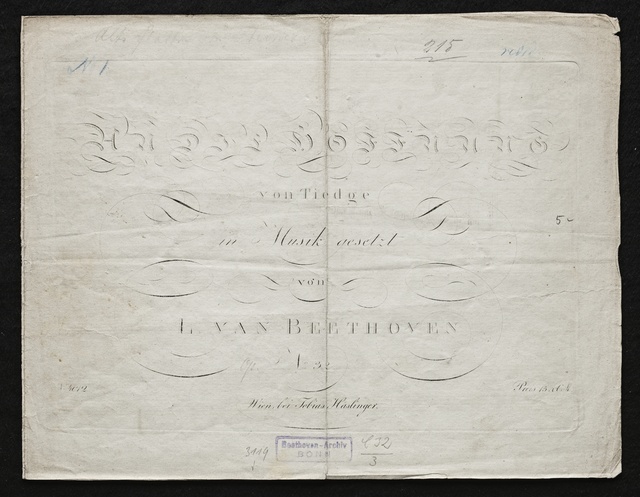 215
No 1
AN DIE HOFFNUNG
von Tiedge
in Musik gesetzt
5-
von
L. VAN BEETHOVEN
Op. 32
Wien, bei Tobias Haslinger.
3119
Beethoven-Archiv
BONN
C 32
3